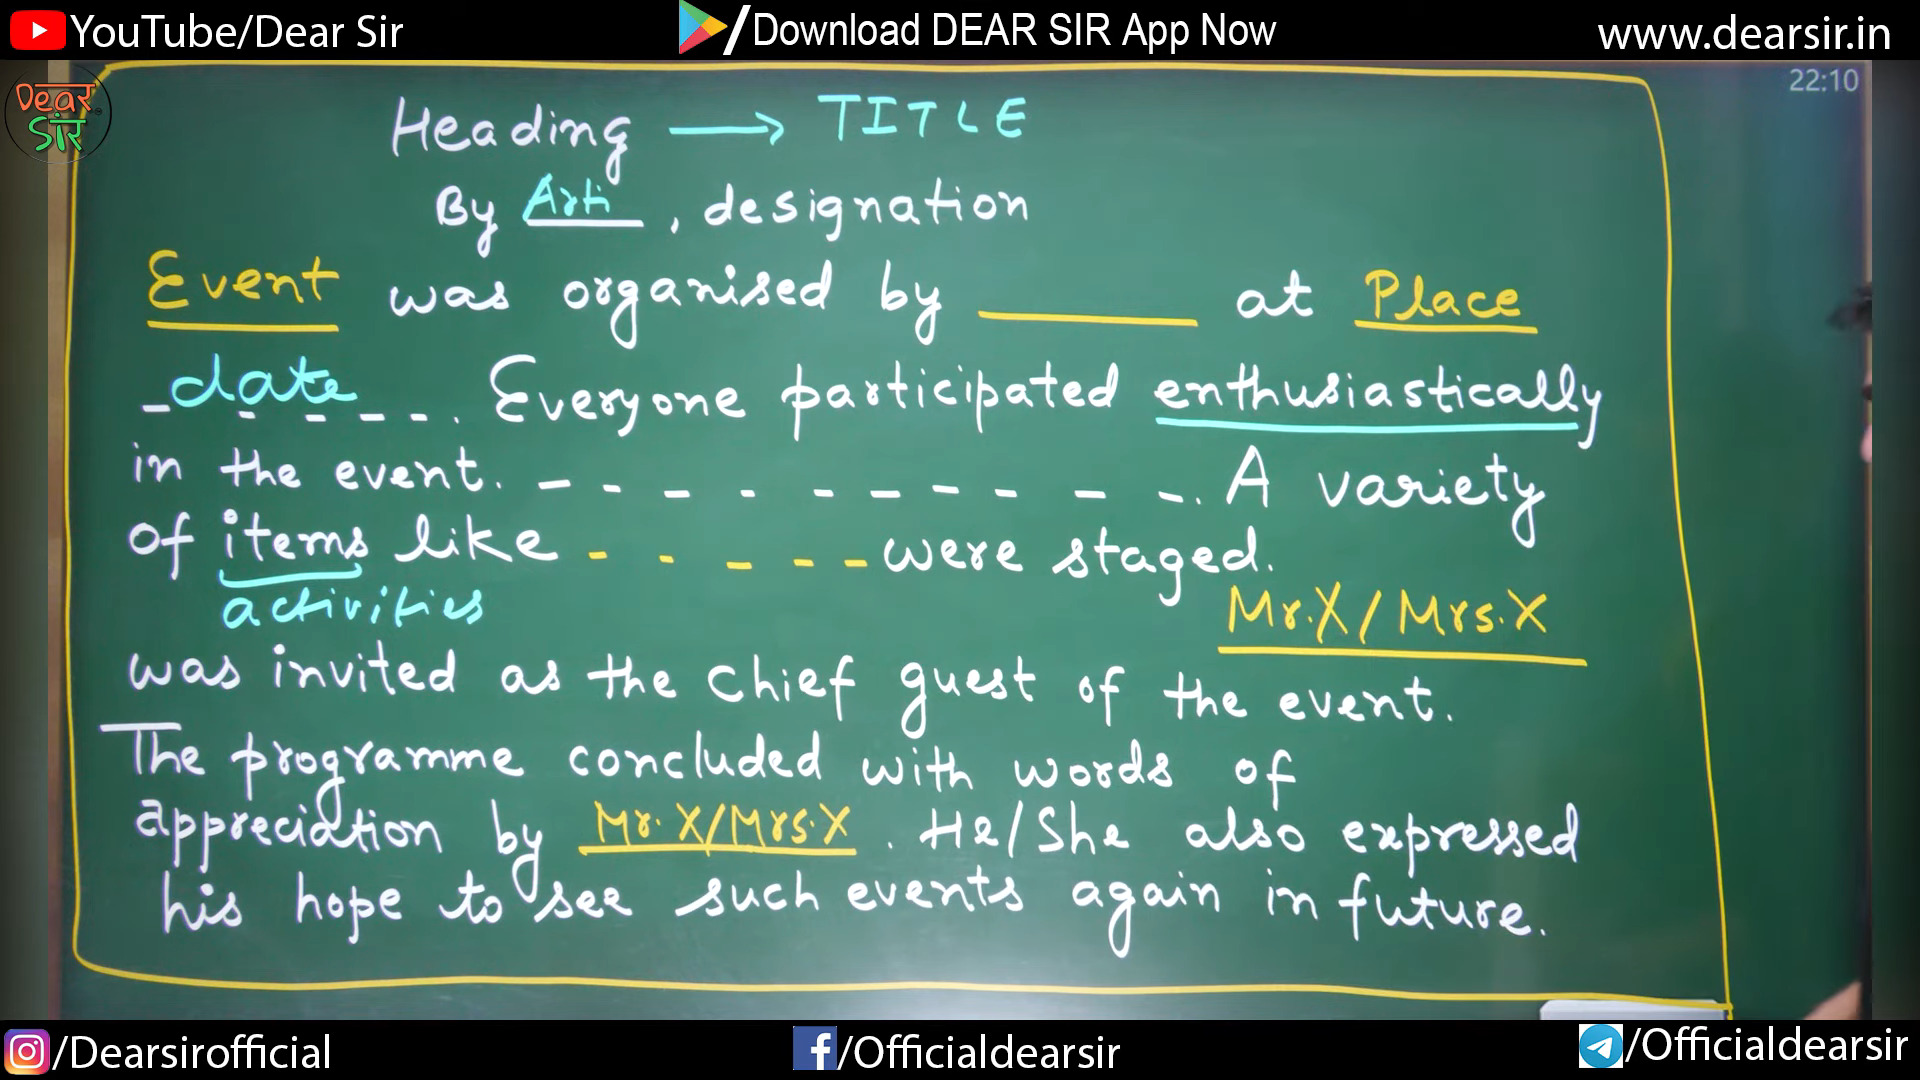 YouTube/Dear Sir
/Download DEAR SIR App Now
www.dearsir.in
Dear
सर
22:10
Heading → TITLE
By Arti, designation
Event was organised by ______ at Place
_date_ _ _ _. Everyone participated enthusiastically
in the event. _ _ _ _ _ _ _ _ _ _. A variety
of items like _ _ _ _ _ were staged.
activities
Mr.X/Mrs.X
was invited as the chief guest of the event.
The programme concluded with words of
appreciation by Mr.X/Mrs.X. He/She also expressed
his hope to see such events again in future.
/Dearsirofficial
/Officialdearsir
/Officialdearsir